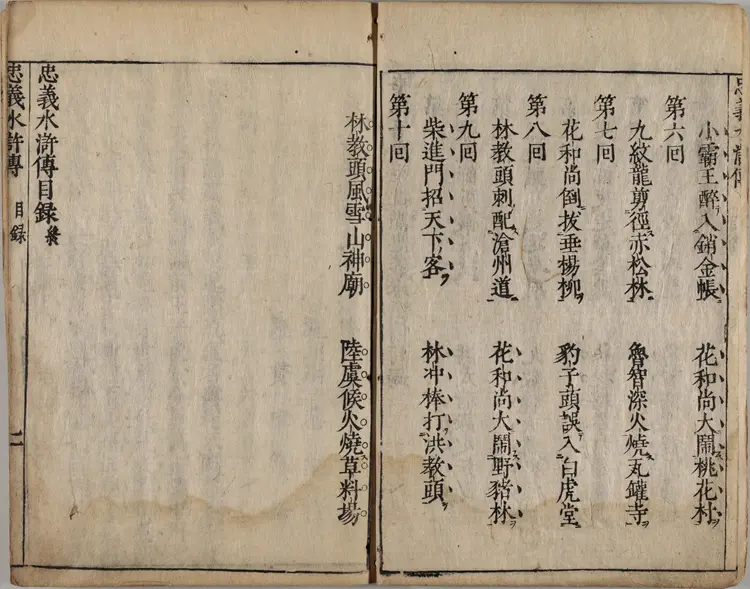 忠義水滸傳
小霸王醉入銷金帳 花和尚大鬧桃花村
第六回
九紋龍剪徑赤松林 魯智深火燒瓦罐寺
第七回
花和尚倒拔垂楊柳 豹子頭誤入白虎堂
第八回
林教頭刺配滄州道 花和尚大鬧野豬林
第九回
柴進門招天下客 林冲棒打洪教頭
第十回
林教頭風雪山神廟 陸虞候火燒草料場
忠義水滸傳目録
忠義水滸傳 目録 二